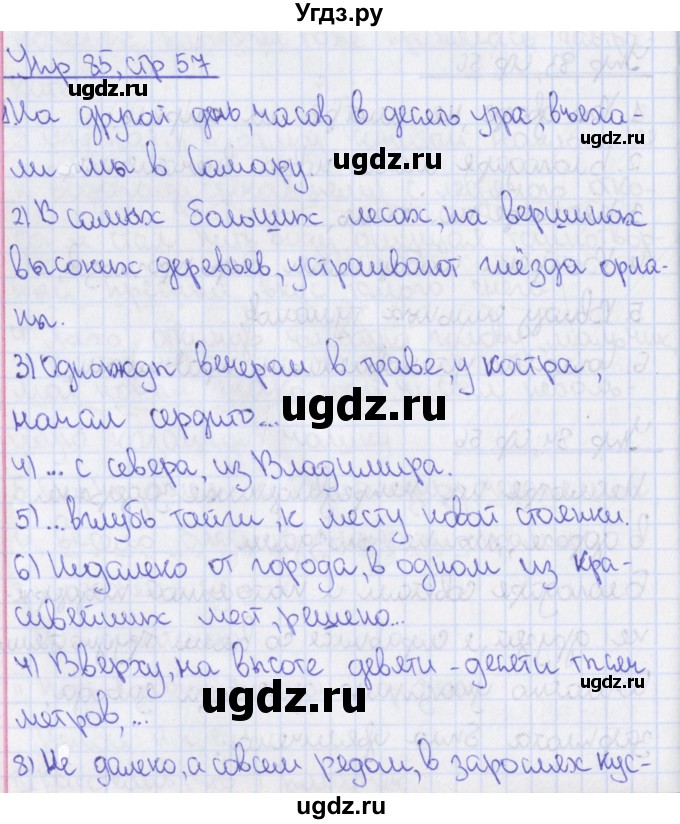 Угдз.ру
Упр 85, стр 57
ugdz.ru
1) На другой день, часов в десять утра, въеха-
ли мы в Самару.
ugdz.ru
2) В самых больших лесах, на вершинах
высоких деревьев, устраивают гнёзда орла-
ны.
3) Однажды вечером в траве, у костра,
ugdz.ru
начал сердито...
4) ... с севера, из Владимира.
5) ... вглубь тайги, к месту новой стоянки.
6) Недалеко от города, в одном из кра-
сивейших мест, решено...
ugdz.ru
7) Вверху, на высоте девяти - десяти тысяч
ugdz.ru
метров, ...
8) Не далеко, а совсем рядом, в зарослях кус-
ugdz.ru